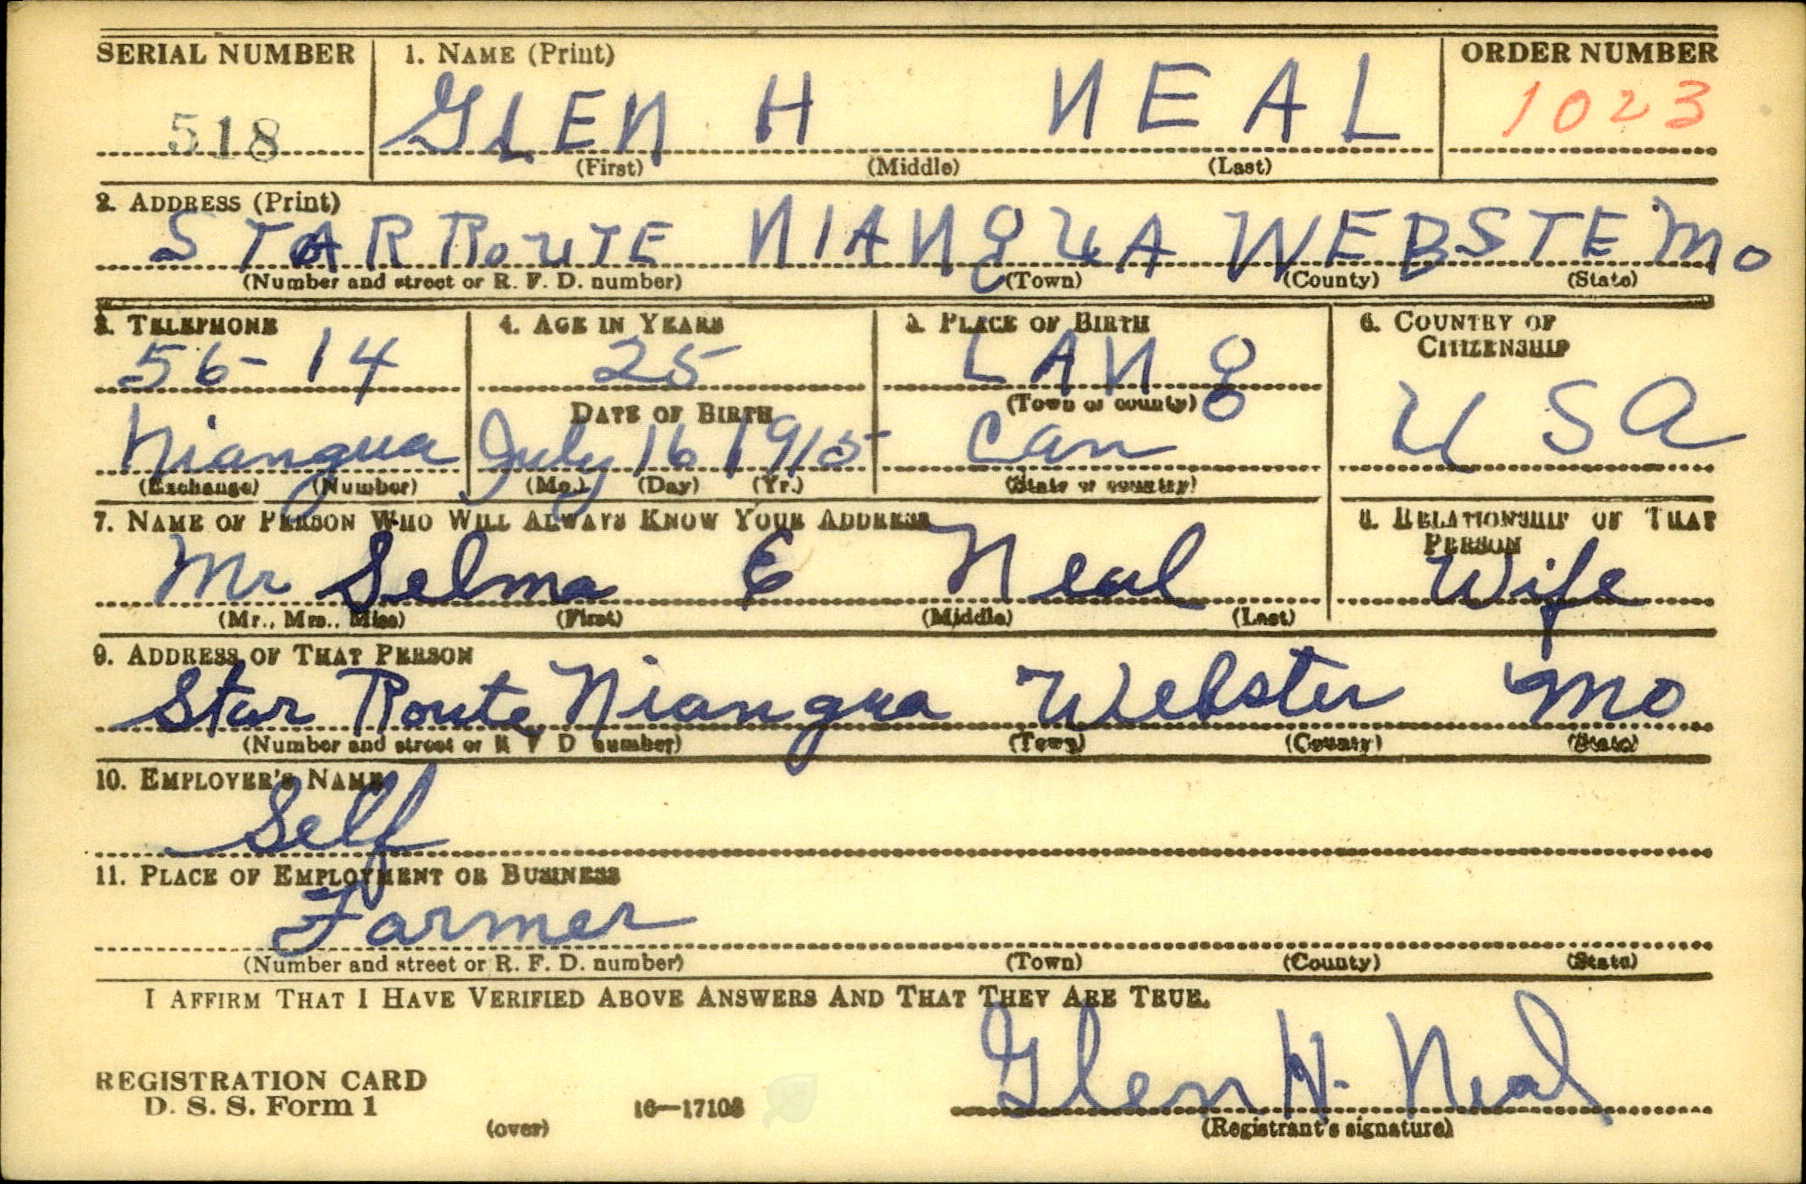 SERIAL NUMBER 1. NAME (Print) ORDER NUMBER
518 GLEN H NEAL 1023
(First) (Middle) (Last)
2. ADDRESS (Print)
STAR ROUTE NIANGUA WEBSTE MO
(Number and street or R. F. D. number) (Town) (County) (State)
3. TELEPHONE 4. AGE IN YEARS 5. PLACE OF BIRTH 6. COUNTRY OF CITIZENSHIP
56-14 25 LANG
DATE OF BIRTH (Town or county)
Niangua July 16 1915 Can USA
(Exchange) (Number) (Mo.) (Day) (Yr.) (State or country)
7. NAME OF PERSON WHO WILL ALWAYS KNOW YOUR ADDRESS 8. RELATIONSHIP OF THAT PERSON
Mr Selma E Neal Wife
(Mr., Mrs., Miss) (First) (Middle) (Last)
9. ADDRESS OF THAT PERSON
Star Route Niangua Webster Mo
(Number and street or R F D number) (Town) (County) (State)
10. EMPLOYER'S NAME
Self
11. PLACE OF EMPLOYMENT OR BUSINESS
Farmer
(Number and street or R. F. D. number) (Town) (County) (State)
I AFFIRM THAT I HAVE VERIFIED ABOVE ANSWERS AND THAT THEY ARE TRUE.
Glen H. Neal
REGISTRATION CARD
D. S. S. Form 1 16—17108
(over) (Registrant's signature)